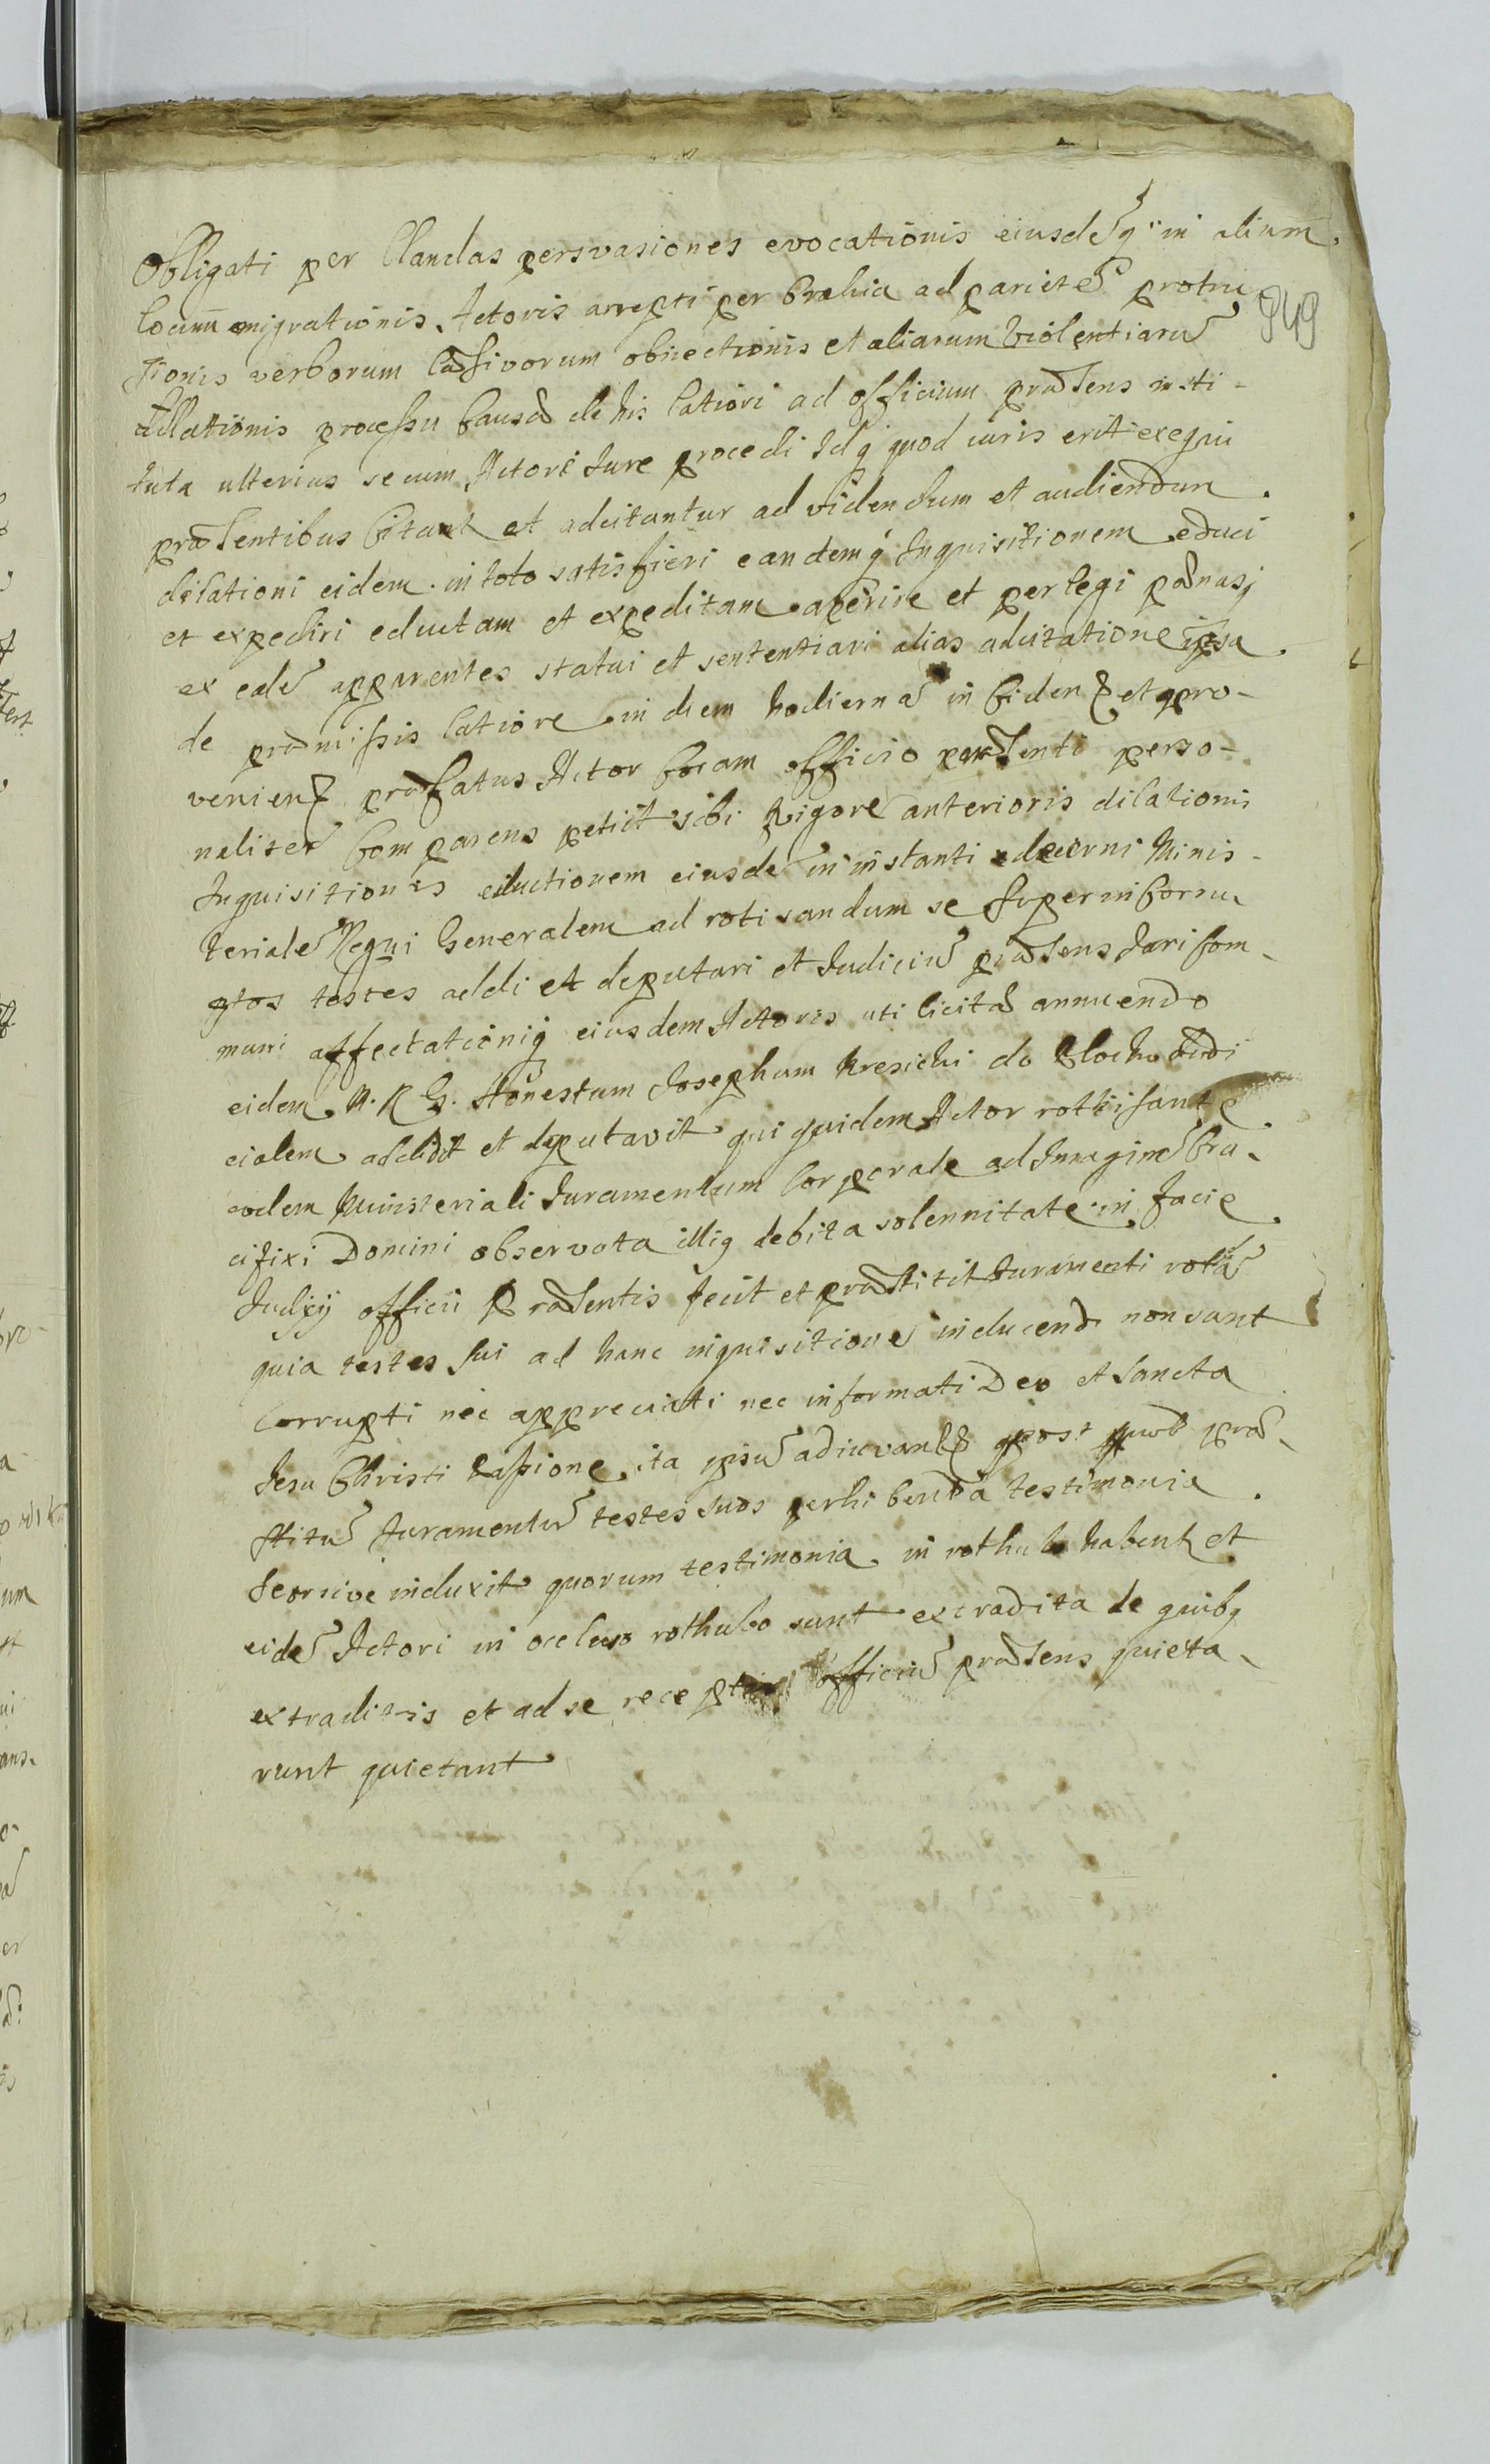 Obligati per blandas persvasiones evocationis eiusdẽq in alium
locum emigrationis Actoris arrepti per brachia ad parietẽ protru
949
sionis verborum læsivorum obiectionis et aliarum violentiarũ
illationis processu causæ de his latiori ad officium præsens insti-
tuta ulterius secum Actore Jure procedi Idq quod iuris erit exequi
præsentibus citant et adcitantur ad videndum et audiendum
dilationi eidem in toto satisfieri eandemq Inquisitionem educi
et expediri eductam et expeditam aperire et perlegi pænasq
ex eadẽ apparentes statui et sententiari alias adcitatione ipsa
de præmissis latiore in diem hodiernã inciden et pro-
venien præfatus Actor Coram officio præsenti perso-
naliter Comparens petiit sibi Vigore anterioris dilationis
Inquisitionis eductionem eiusdẽ in instanti decerni Minis-
terialẽ Regni Generalem ad rotisandum se super inCorru
ptos testes addi et deputari et Judiciũ præsens Juri Com-
muni affectationiq eiusdem Actoris uti licitæ annuendo
eidem M. R. G. Honestum Josephum Kresichi de
cialem addidit et deputavit qui quidem Actor rothisante
eodem Ministeriali Juramentum Corporale ad Imaginẽ Cru-
cifixi Domini observata illiq debita solennitate in facie
Judicij officii Præsentis fecit et præstitit Juramenti rotã
quia testes sui ad hanc inquisitionẽ inducend non sunt
Corrupti nec appreciati nec informati Deo et Sancta
Jesu Christi Passione ita ipsũ adiuvan post quod præ-
stitũ Juramentũ testes suos perhibenda testimonia
Seorsive induxit quorum testimonia in rothulo habent et
eidẽ Actori in occluso rothulo sunt extradita de quibq
extraditis et ad se receptis officiũ præsens quieta-
runt quietant